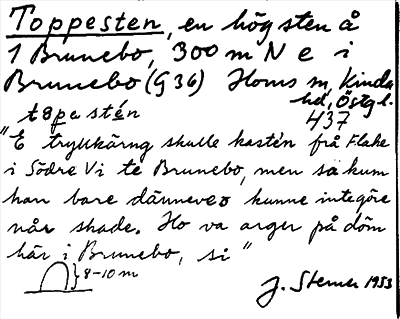 Toppesten, en hög sten å
1 Brunebo, 300 m N e i
Brunebo (G 36) Horns sn, Kinda
hd, Östgl.
tɵpestén 437
"E tryllkäring skulle kastén frå Flake
i Södre Vi te Brunebo, men sa kum
han bare dänneve o kunne inte göre
når skade. Ho va arger på döm
här i Brunebo, si"
8-10 m
J. Stemer 1953